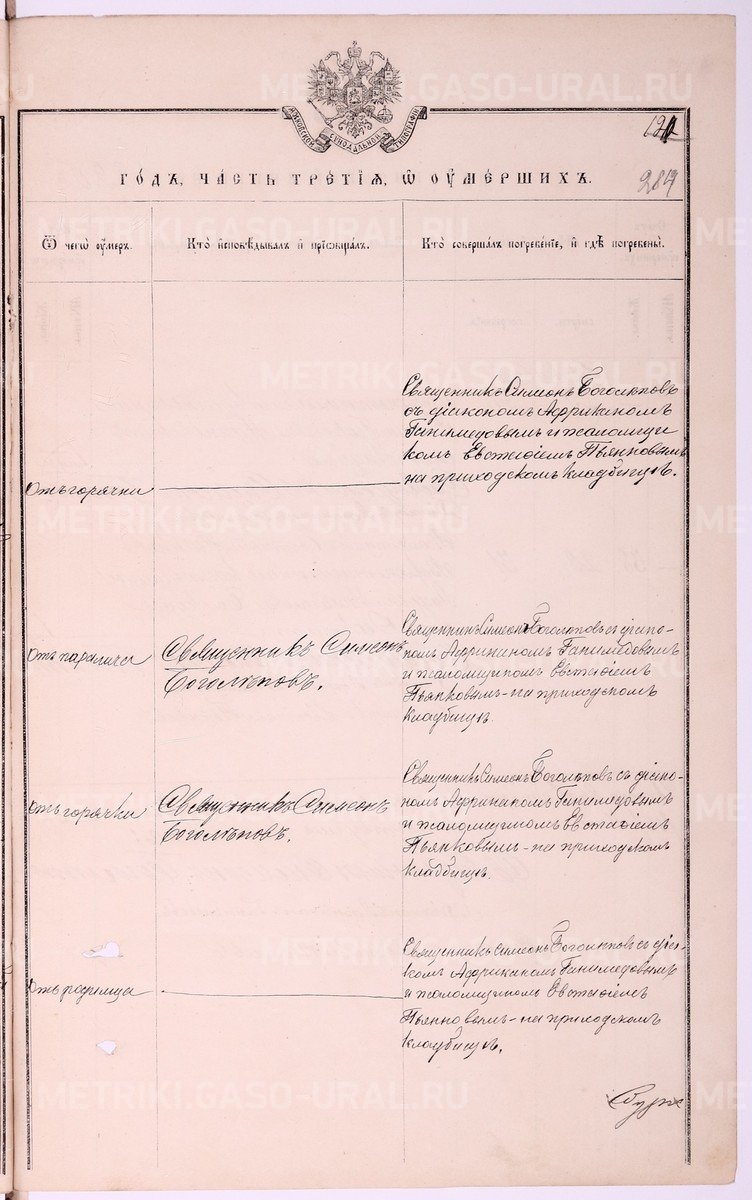 METRIKI.GASO-URAL.RU
МОСКОВСКОЙ СѴНОДАЛЬНОЙ ТИПОГРАФІИ
284
ГО́ДЪ, ЧА́СТЬ ТРЕ́ТІѦ, Ѽ ОУ҆МЕ́РШИХЪ.
Ѿ чегѡ̀ оу҆́меръ.
Кто̀ и҆сповѣ́дывалъ и҆ прїѡбща́лъ.
Кто̀ соверша́лъ погребе́нїе, и҆ гдѣ̀ погребены̀.
Отъ горячки
Священникъ Симеонъ Боголѣповъ
съ діакономъ Африканомъ
Ганимедовымъ и псаломщи
комъ Евстафіемъ Пьянковымъ
на приходскомъ кладбищѣ.
Отъ паралича
Священникъ Симеонъ
Боголѣповъ.
Священникъ Симеонъ Боголѣповъ съ діако-
номъ Африканомъ Ганимедовымъ
и псаломщикомъ Евстафіемъ
Пьянковымъ - на приходскомъ
кладбищѣ.
Отъ горячки
Священникъ Симеонъ
Боголѣповъ.
Священникъ Симеонъ Боголѣповъ съ діако-
номъ Африканомъ Ганимедовымъ
и псаломщикомъ Евстафіемъ
Пьянковымъ - на приходскомъ
кладбищѣ.
Отъ родимца
Священникъ Симеонъ Боголѣповъ съ діа-
комъ Африканомъ Ганимедовымъ
и псаломщикомъ Евстафіемъ
Пьянковымъ - на приходскомъ
кладбищѣ.